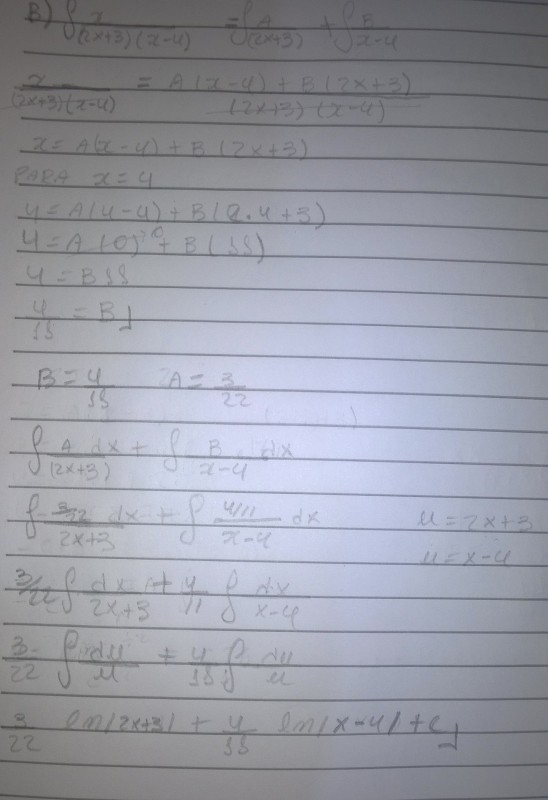 B) ∫ x/(2x+3)(x-4) = ∫ A/(2x+3) + ∫ B/x-4
x/(2x+3)(x-4) = A(x-4) + B(2x+3)/(2x+3)(x-4)
x = A(x-4) + B(2x+3)
PARA x = 4
4 = A(4-4) + B(2.4+3)
4 = A(0)⁰ + B(11)
4 = B11
4/11 = B
B = 4/11 A = 3/22
∫ A/(2x+3) dx + ∫ B/x-4 dx
∫ 3/22/2x+3 dx + ∫ 4/11/x-4 dx u = 2x+3
u = x-4
3/22 ∫ dx/2x+3 + 4/11 ∫ dx/x-4
3/22 ∫ du/u + 4/11 ∫ du/u
3/22 ln|2x+3| + 4/11 ln|x-4| + C